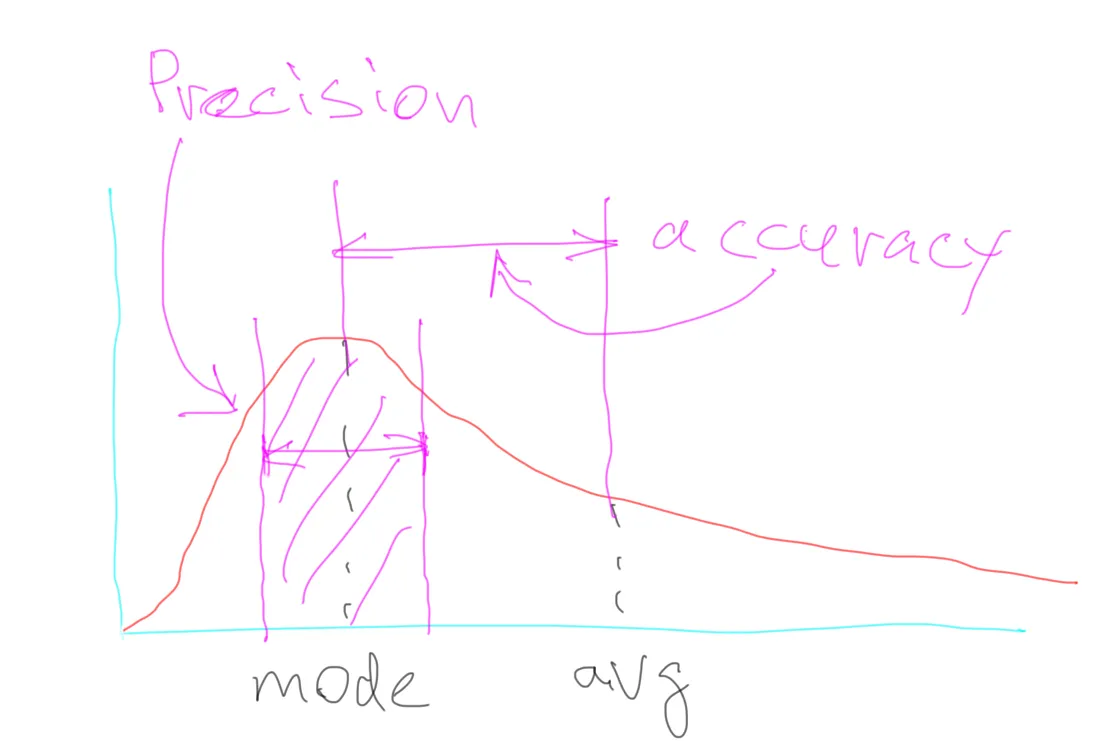 Precision
accuracy
mode
avg